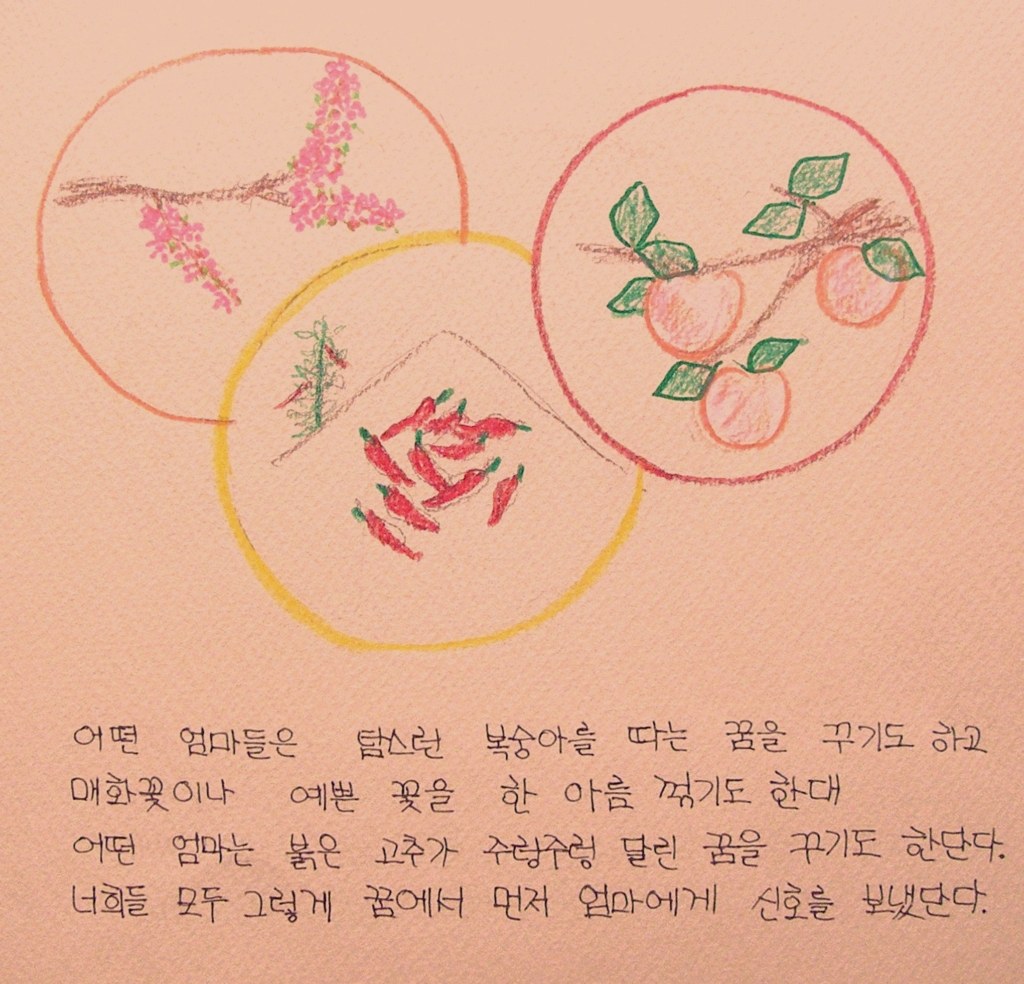 어떤 엄마들은 탐스런 복숭아를 따는 꿈을 꾸기도 하고
매화꽃이나 예쁜 꽃을 한 아름 꺾기도 한대
어떤 엄마는 붉은 고추가 주렁주렁 달린 꿈을 꾸기도 한단다.
너희들 모두 그렇게 꿈에서 먼저 엄마에게 신호를 보냈단다.